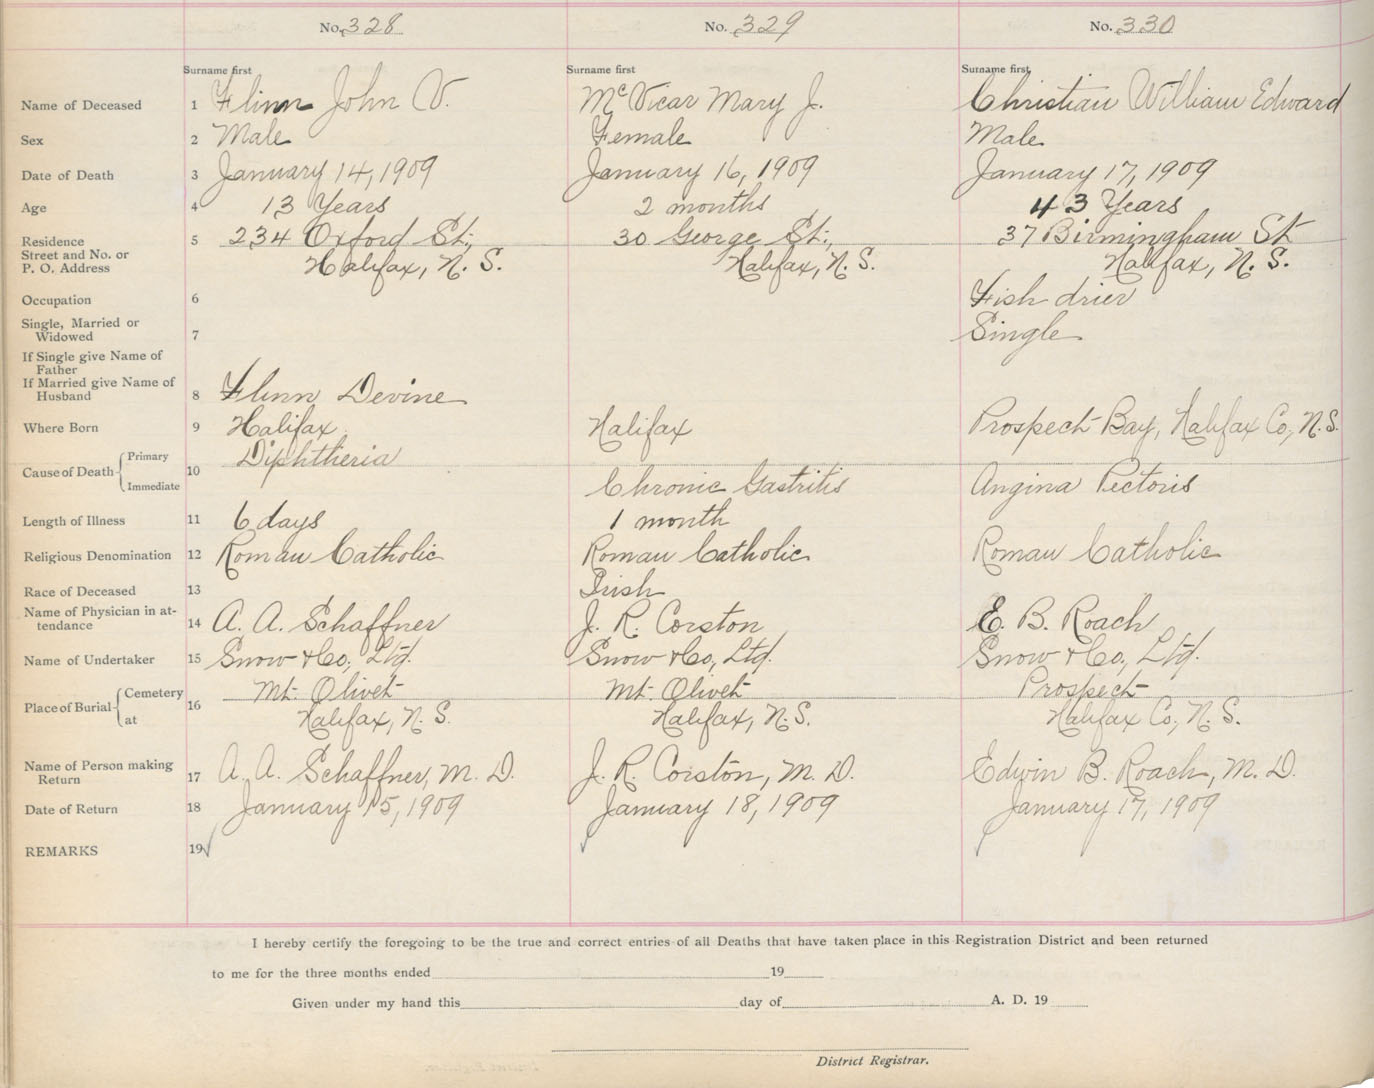 No. 328 No. 329 No. 330
Surname first Surname first Surname first
Name of Deceased 1 Flinn John V. McVicar Mary J. Christian William Edward
Sex 2 Male Female Male
Date of Death 3 January 14, 1909 January 16, 1909 January 17, 1909
Age 4 13 Years 2 months 43 Years
Residence 5 234 Oxford St., 30 George St., 37 Birmingham St
Street and No. or
P. O. Address Halifax, N. S. Halifax, N. S. Halifax, N. S.
Occupation 6 Fish drier
Single, Married or
Widowed 7 Single
If Single give Name of
Father
If Married give Name of
Husband 8 Flinn Devine
Where Born 9 Halifax Halifax Prospect Bay, Halifax Co., N.S.
Cause of Death Primary 10 Diphtheria
Immediate Chronic Gastritis Angina Pectoris
Length of Illness 11 6 days 1 month
Religious Denomination 12 Roman Catholic Roman Catholic Roman Catholic
Race of Deceased 13 Irish
Name of Physician in at-
tendance 14 A. A. Schaffner J. R. Corston E. B. Roach
Name of Undertaker 15 Snow & Co., Ltd. Snow & Co., Ltd. Snow & Co., Ltd.
Place of Burial Cemetery 16 Mt. Olivet Mt. Olivet Prospect
at Halifax, N. S. Halifax, N. S. Halifax Co., N. S.
Name of Person making
Return 17 A. A. Schaffner, M. D. J. R. Corston, M. D. Edwin B. Roach, M. D.
Date of Return 18 January 15, 1909 January 18, 1909 January 17, 1909
REMARKS 19
I hereby certify the foregoing to be the true and correct entries of all Deaths that have taken place in this Registration District and been returned
to me for the three months ended 19
Given under my hand this day of A. D. 19
District Registrar.